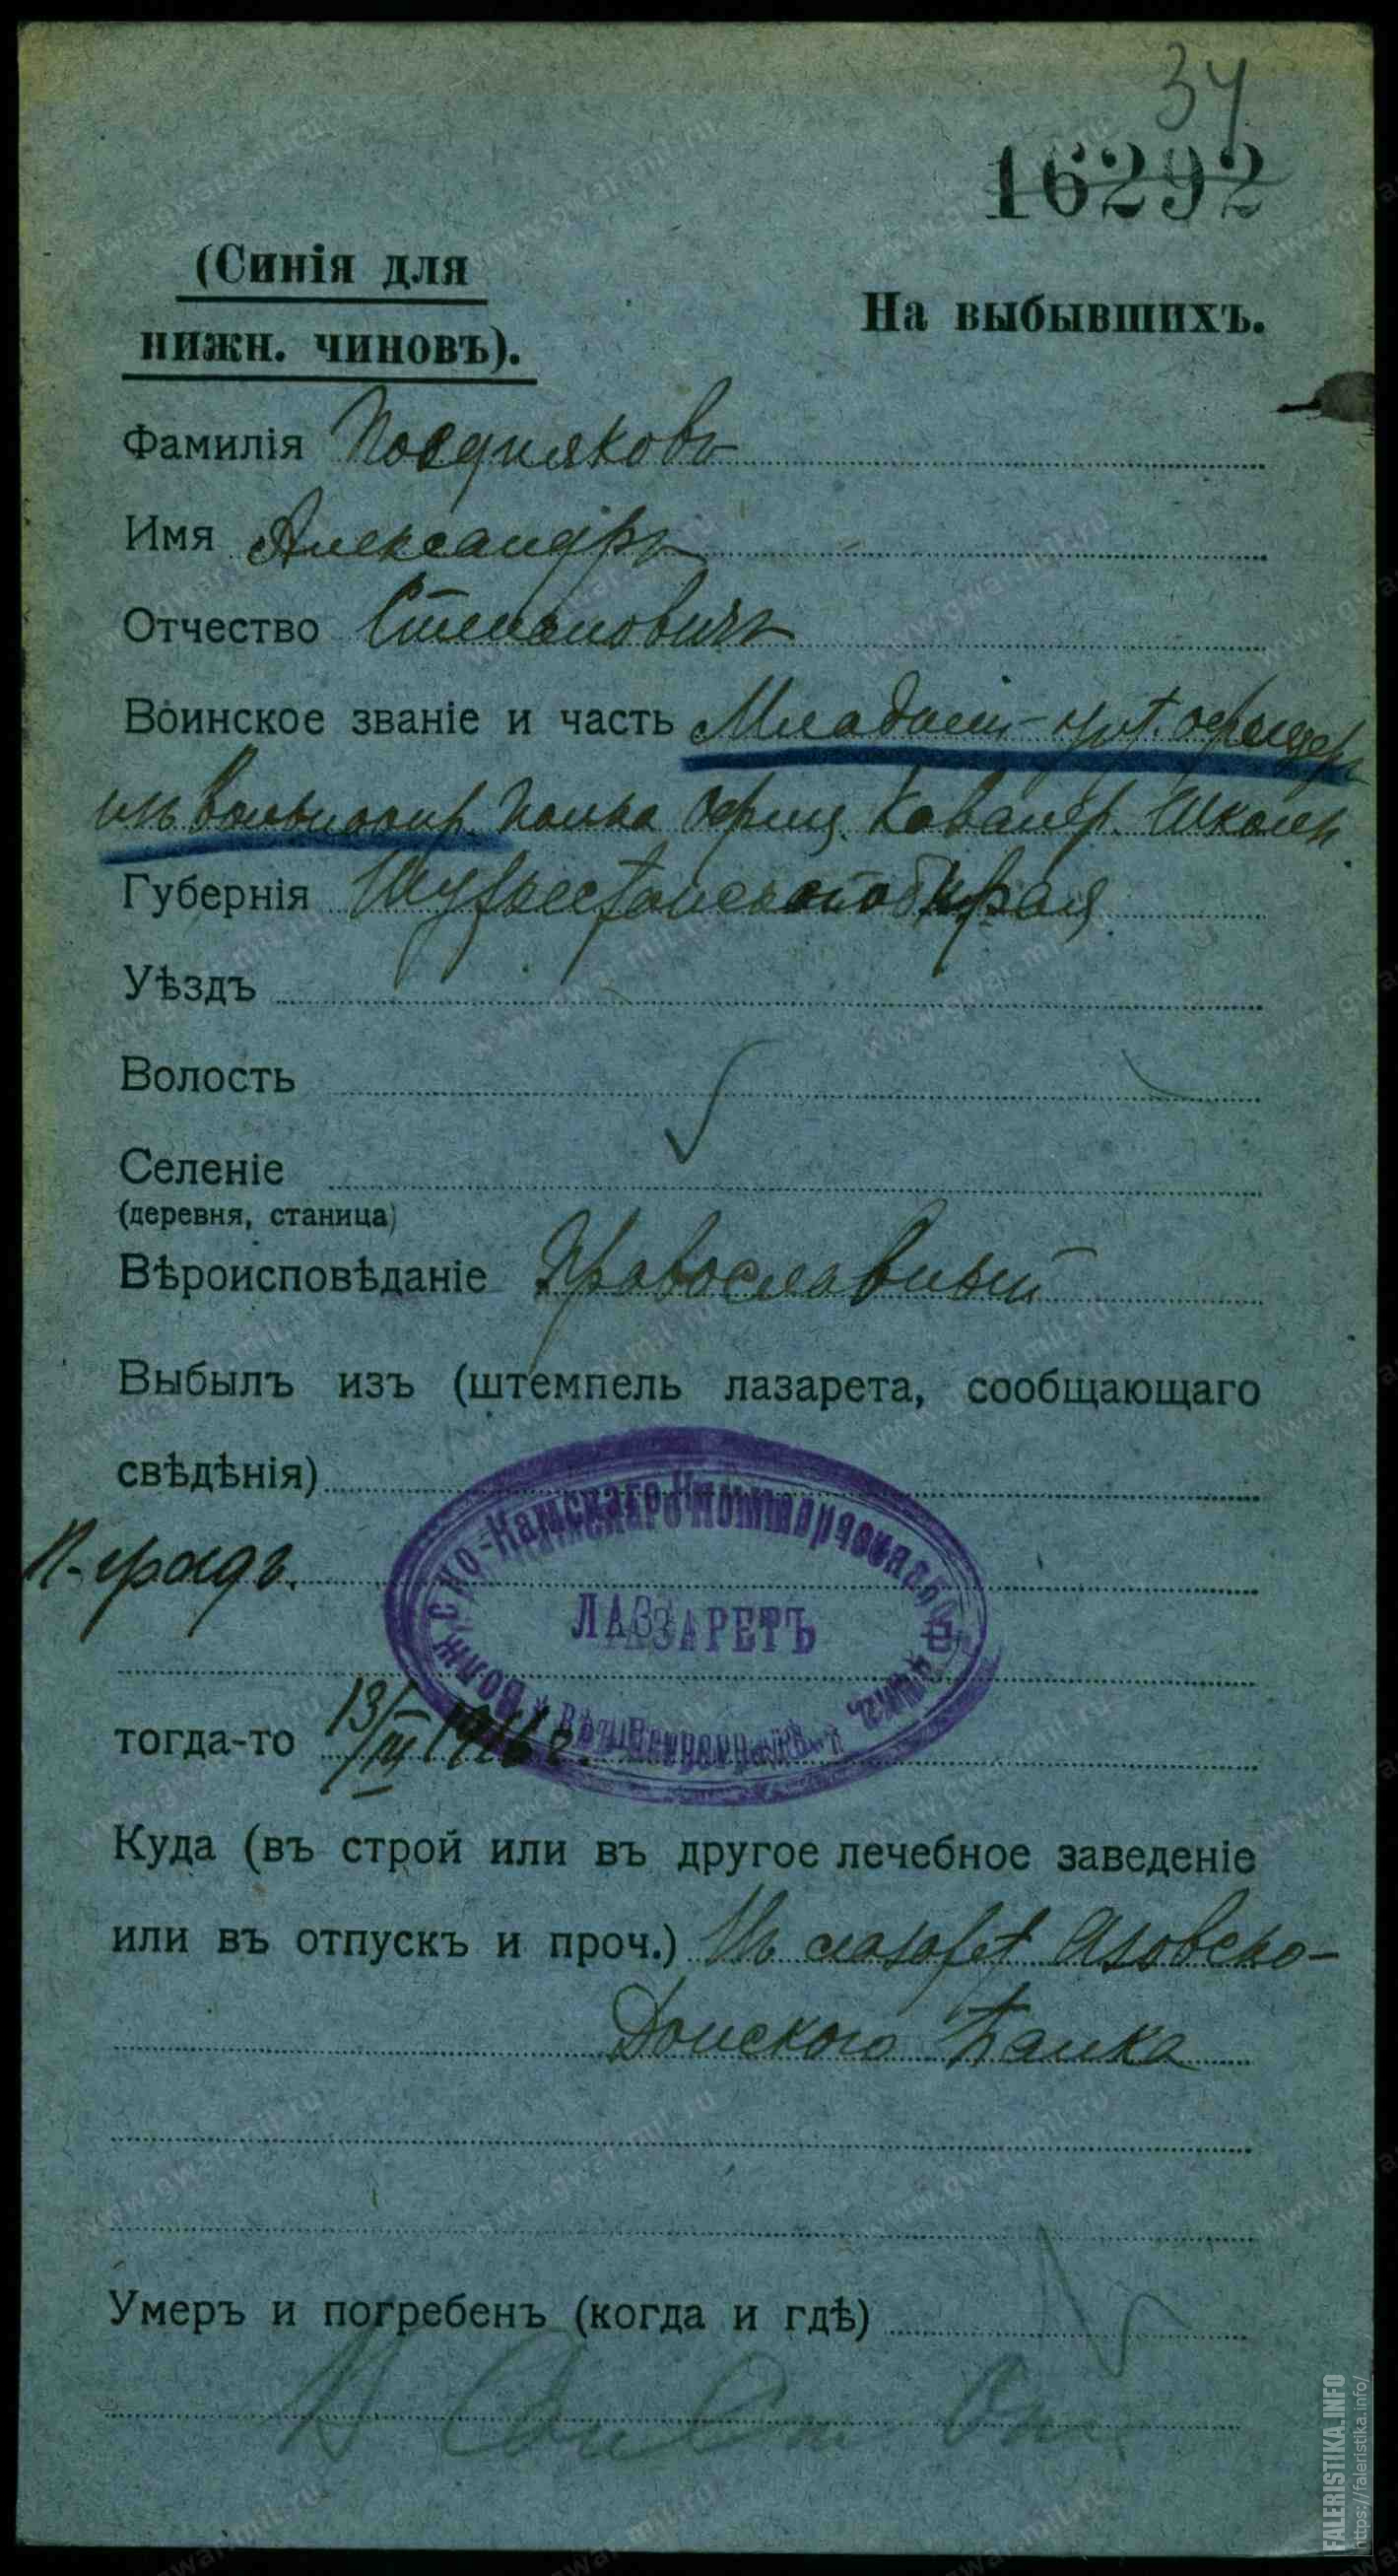 34
16292
(Синія для
нижн. чиновъ).
На выбывшихъ.
Фамилія Поздняковъ
Имя Александръ
Отчество Степановичъ
Воинское званіе и часть Младш. унт. офицеръ
изъ вольноопр. полка Офиц. Кавалер. Школы
Губернія края
Уѣздъ
Волость
Селеніе
(деревня, станица)
Вѣроисповѣданіе Православный
Выбылъ изъ (штемпель лазарета, сообщающаго
свѣдѣнія)
П-градъ.
Волжско-Камскаго Коммерческаго Банка
ЛАЗАРЕТЪ
тогда-то 13/III 1916 г.
Куда (въ строй или въ другое лечебное заведеніе
или въ отпускъ и проч.) Въ лазарет Азовско-
Донского Банка
Умеръ и погребенъ (когда и гдѣ)
FALERISTIKA.INFO
https://faleristika.info/
www.gwar.mil.ru